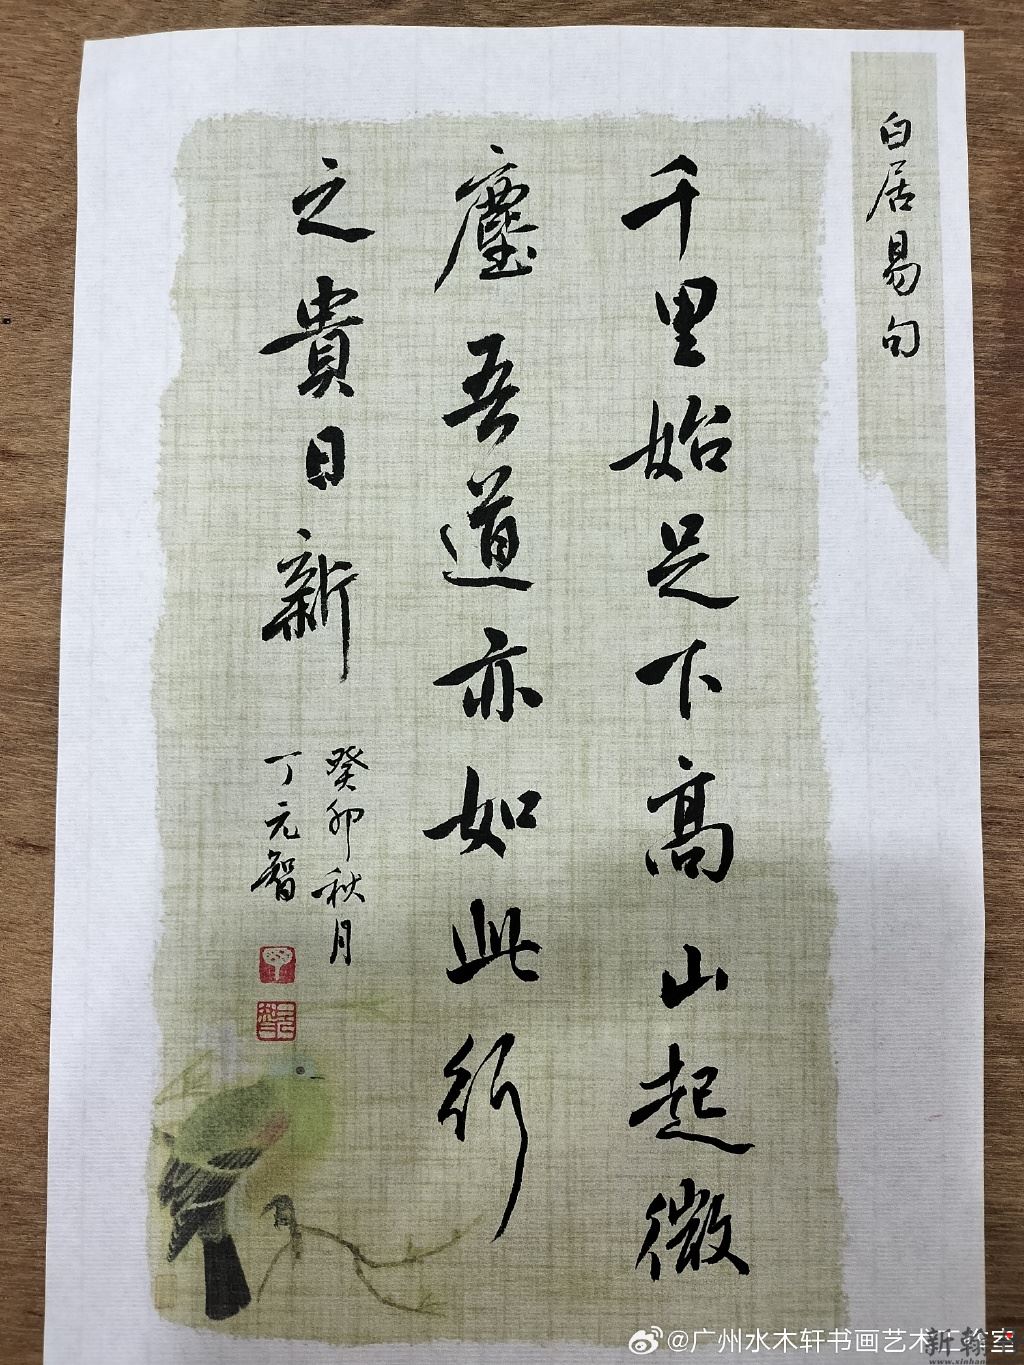 白居易句
千里始足下高山起微
塵吾道亦如此行
之貴日新
癸卯秋月
丁元智
@广州水木轩书画艺术工
新翰
www.xinhan